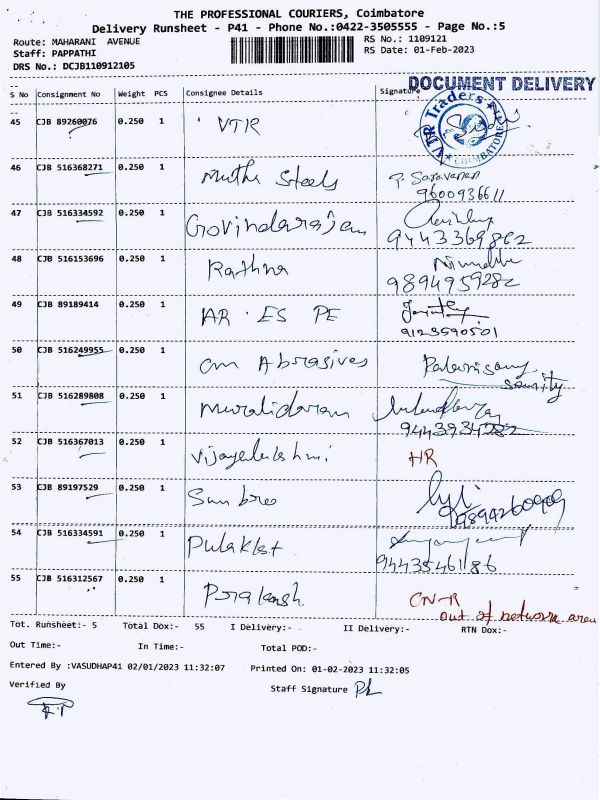 THE PROFESSIONAL COURIERS, Coimbatore
Delivery Runsheet - P41 - Phone No.:0422-3505555 - Page No.:5
Route: MAHARANI AVENUE
RS No.: 1109121
Staff: PAPPATHI
RS Date: 01-Feb-2023
DRS No.: DCJB110912105
DOCUMENT DELIVERY
S No Consignment No Weight PCS Consignee Details Signature
45 CJB 89260076 0.250 1 VTR
VTR Traders
COIMBATORE
46 CJB 516368271 0.250 1 Muthu Steels P. Saravanan
9600936611
47 CJB 516334592 0.250 1 Govindarajan
9443369862
48 CJB 516153696 0.250 1 Rathna Nirmala
9894959282
49 CJB 89189414 0.250 1 AR . ES PE
9123590501
50 CJB 516249955 0.250 1 om Abrasives Palanisamy
security
51 CJB 516289808 0.250 1 Muralidaran
9443934282
52 CJB 516367013 0.250 1 Vijayalakshmi HR
53 CJB 89197529 0.250 1 Sun bres
9894260909
54 CJB 516334591 0.250 1
9443546186
55 CJB 516312567 0.250 1 Prakash CN-R
out of network area
Tot. Runsheet:- 5 Total Dox:- 55 I Delivery:- II Delivery:- RTN Dox:-
Out Time:- In Time:- Total POD:-
Entered By :VASUDHAP41 02/01/2023 11:32:07 Printed On: 01-02-2023 11:32:05
Verified By
Staff Signature